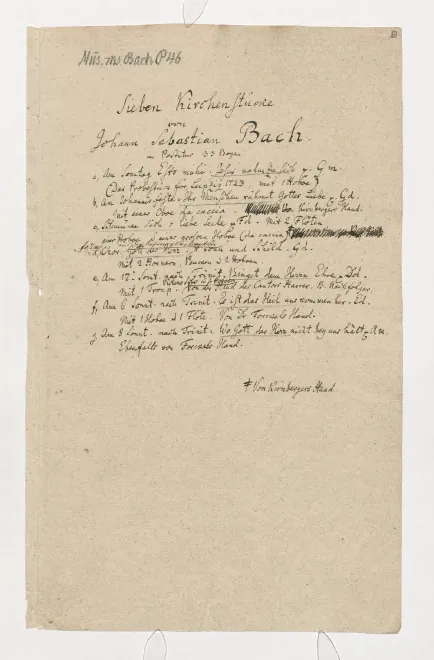 Mus. ms. Bach P 46
Sieben Kirchenstücke
von
Johann Sebastian Bach.
in Partitur 33 Bogen
a, Am Sontag Esto mihi: Jesus nahm zu sich p. G m.
(Das Probestück für Leipzig 1723. mit 1 Hoboe)
b, Am Johannisfeste. Ihr Menschen rühmt Gottes Liebe p. G d.
Mit einer Oboe da caccia. Von Kirnbergers Hand.
c, liebe Seele p. F d. Mit 2 Flöten
einer Hoboe einer großen Hoboe (da caccia)
d, Gott der Herr ist Sonn und Schild. G d.
Mit 2 Hörnern, Pauken u. 2 Hoboen.
e, Am 17t. Sont. nach Trinit. Bringet dem Herrn Ehre p. D d.
Mit 1 Tromp. Von der Hand des Cantors Harrer, B. Nachfolger.
f, Am 6 Sonnt. nach Trinit. Es ist das Heil uns kommen her. E d.
Mit 1 Hoboe u 1 Flöte. Von Dr Forkels Hand.
g, Am 8 Sonnt. nach Trinit. Wo Gott der Herr nicht bey uns hält p. A m.
Ebenfalls von Forkels Hand.
‡ Von Kirnbergers Hand